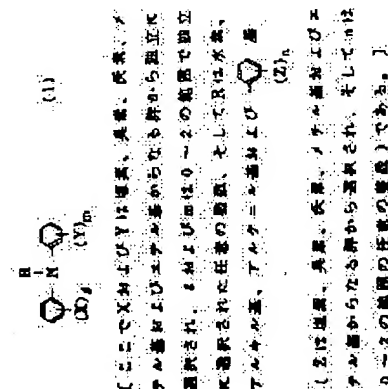 R
N
(X)ℓ (Y)m (1)
〔ここでXおよびYは塩素、臭素、沃素、メ
チル基およびエチル基からなる群から独立に
選択され、ℓおよびmは0~2の範囲で独立
に選択された任意の整数、そしてRは水素、
アルキル基、アルケニル基および (Z)n 基
(Zは塩素、臭素、沃素、メチル基およびエ
チル基からなる群から選択され、そしてnは
0~2の範囲の任意の整数)である。〕